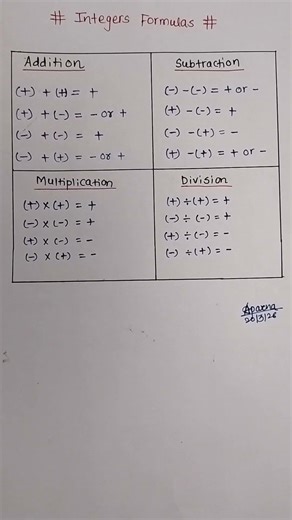 # Integers Formulas #
Addition
(+) + (+) = +
(+) + (-) = - or +
(-) + (-) = +
(-) + (+) = - or +
Subtraction
(-) - (-) = + or -
(+) - (-) = +
(-) - (+) = -
(+) - (+) = + or -
Multiplication
(+) × (+) = +
(-) × (-) = +
(+) × (-) = -
(-) × (+) = -
Division
(+) ÷ (+) = +
(-) ÷ (-) = +
(+) ÷ (-) = -
(-) ÷ (+) = -
Aparna
26/3/26